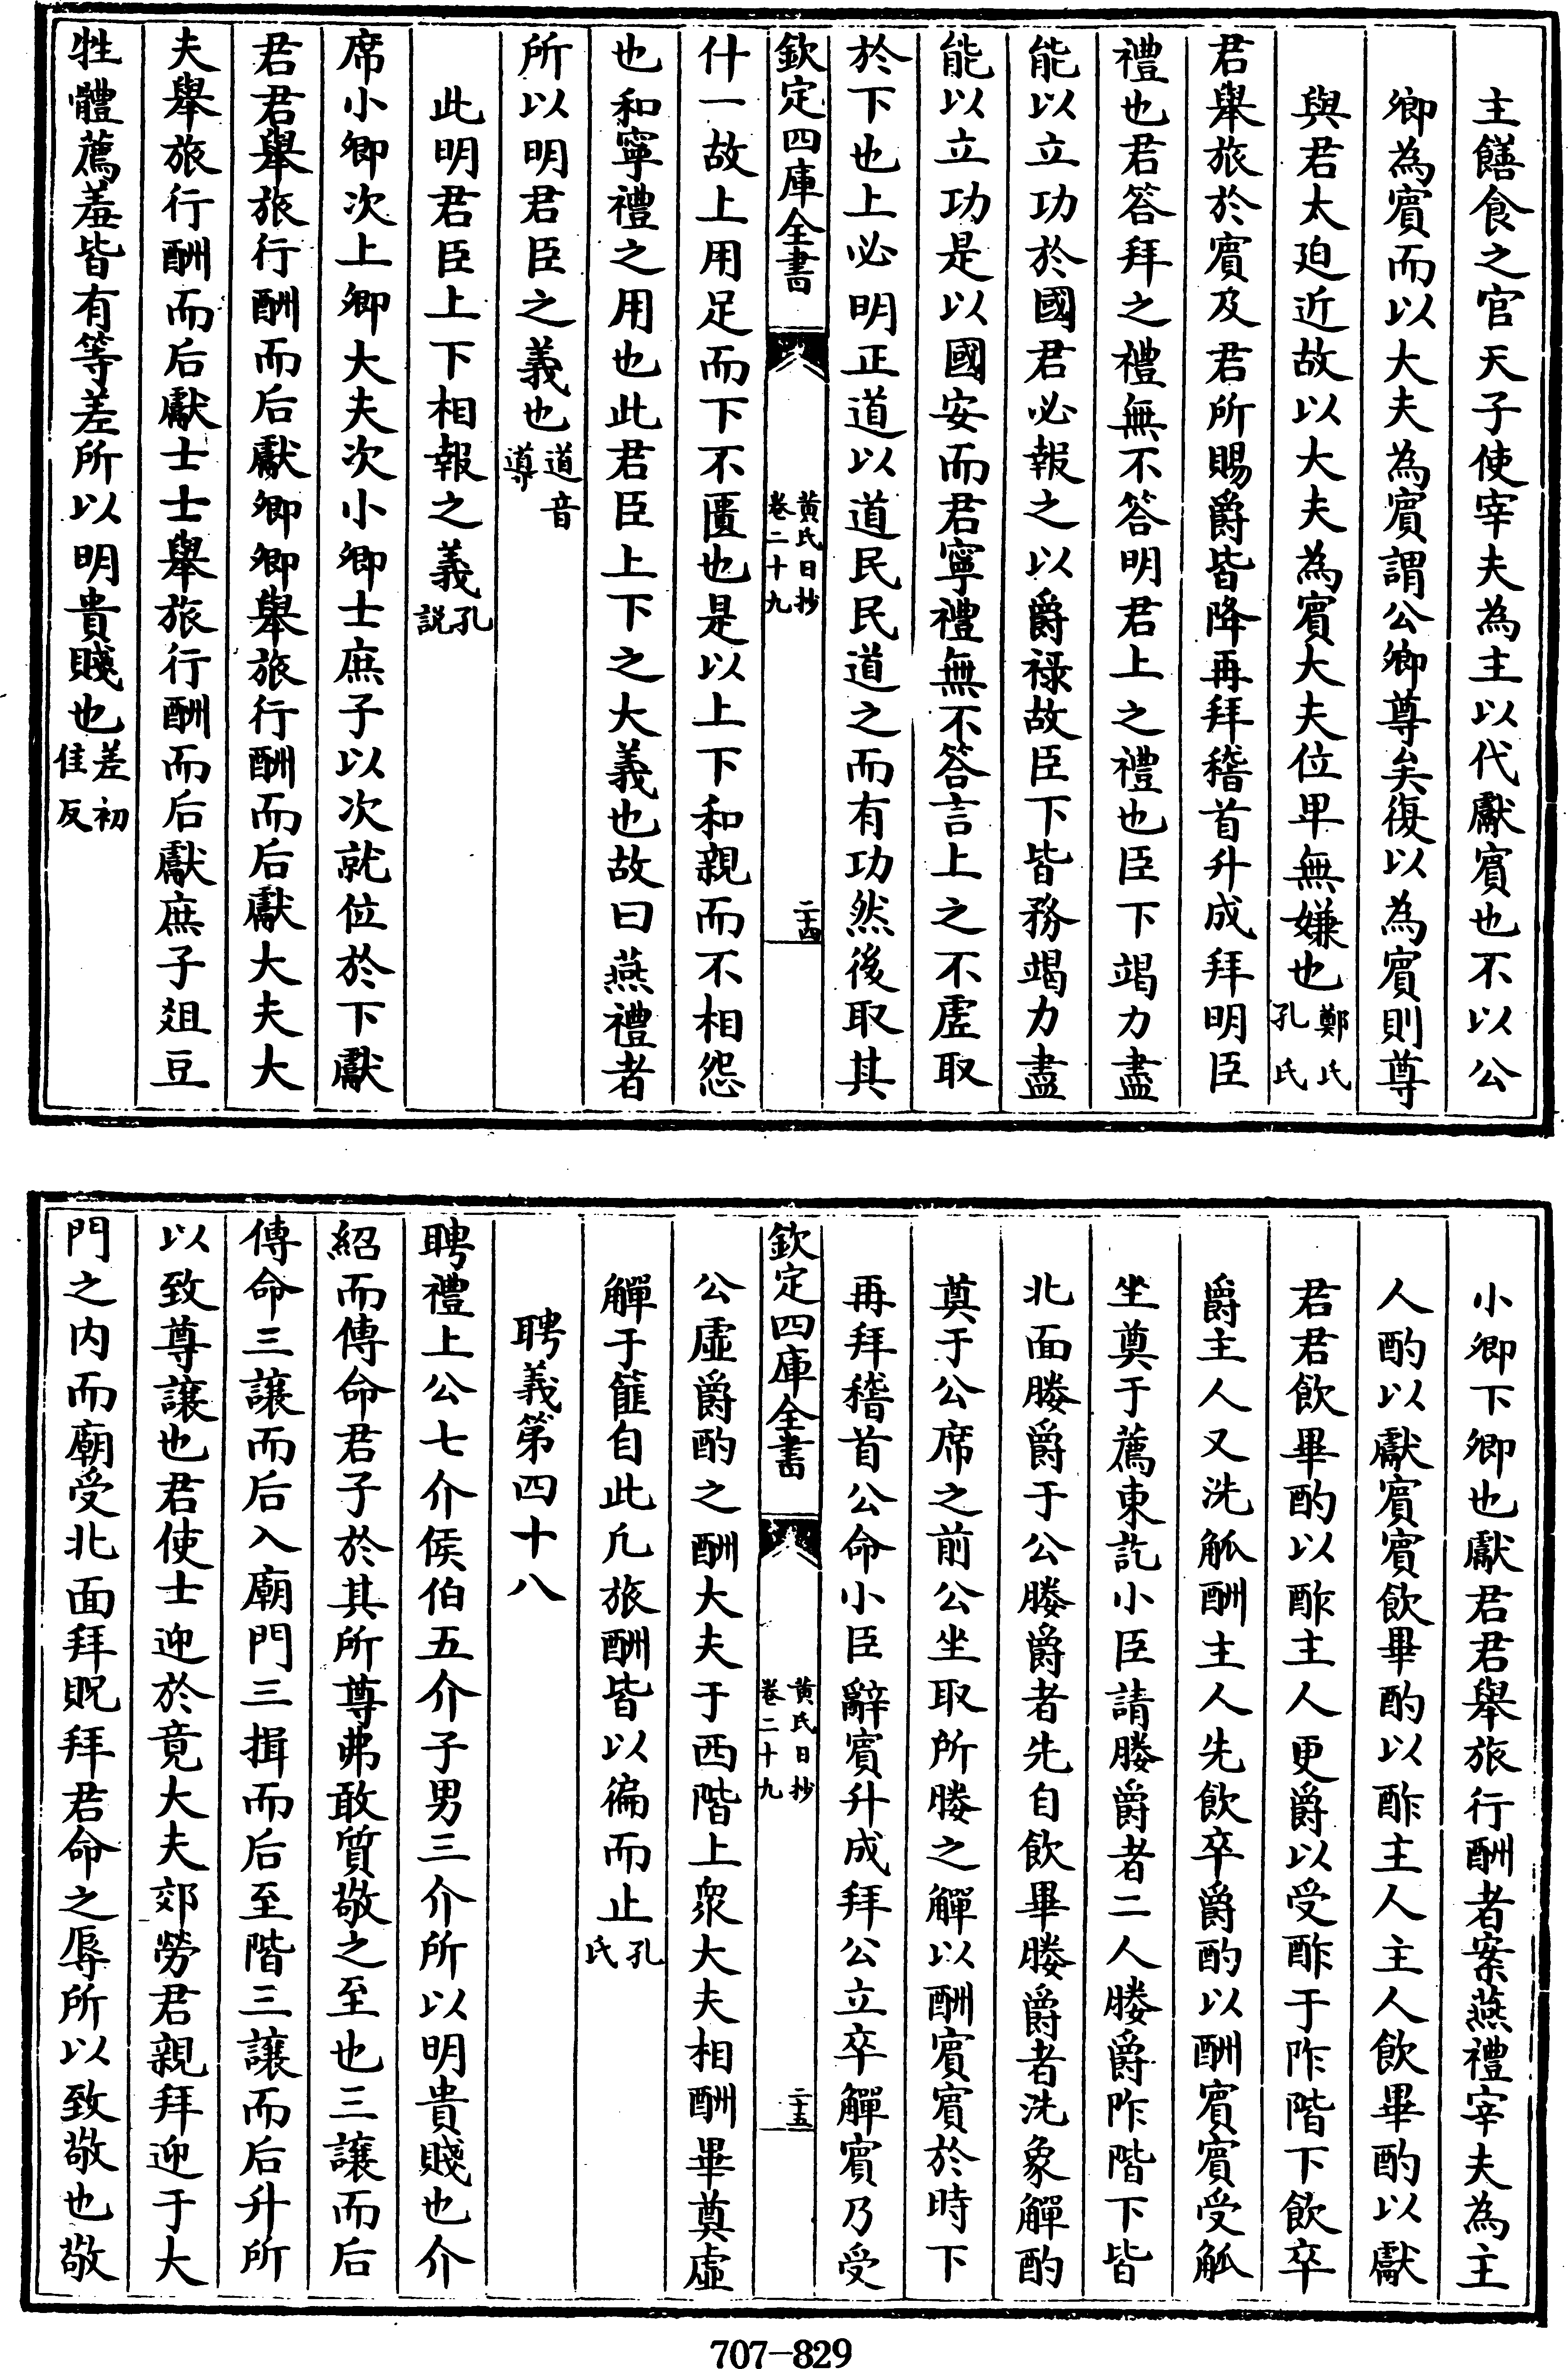 主饍食之官天子使宰夫為主以代獻賓也不以公
卿為賓而以大夫為賓謂公卿尊矣復以為賓則尊
與君太迫近故以大夫為賓大夫位卑無嫌也鄭氏孔氏
君舉旅於賓及君所賜爵皆降再拜稽首升成拜明臣
禮也君答拜之禮無不答明君上之禮也臣下竭力盡
能以立功於國君必報之以爵禄故臣下皆務竭力盡
能以立功是以國安而君寧禮無不答言上之不虛取
於下也上必明正道以道民民道之而有功然後取其
欽定四庫全書 黄氏日抄卷二十九 二十四
什一故上用足而下不匱也是以上下和親而不相怨
也和寧禮之用也此君臣上下之大義也故曰燕禮者
所以明君臣之義也道音導
此明君臣上下相報之義孔說
席小卿次上卿大夫次小卿士庶子以次就位於下獻
君君舉旅行酬而后獻卿卿舉旅行酬而后獻大夫大
夫舉旅行酬而后獻士士舉旅行酬而后獻庶子俎豆
牲體薦羞皆有等差所以明貴賤也差初佳反
小卿下卿也獻君君舉旅行酬者案燕禮宰夫為主
人酌以獻賓賓飲畢酌以酢主人主人飲畢酌以獻
君君飲畢酌以酢主人更爵以受酢于阼階下飲卒
爵主人又洗觚酬主人先飲卒爵酌以酬賓賓受觚
坐奠于薦東訖小臣請媵爵者二人媵爵阼階下皆
北面媵爵于公媵爵者先自飲畢媵爵者洗象觶酌
奠于公席之前公坐取所媵之觶以酬賓賓於時下
再拜稽首公命小臣辭賓升成拜公立卒觶賓乃受
欽定四庫全書 黄氏日抄卷二十九 二十五
公虛爵酌之酬大夫于西階上衆大夫相酬畢奠虛
觶于篚自此凡旅酬皆以徧而止孔氏
聘義第四十八
聘禮上公七介侯伯五介子男三介所以明貴賤也介
紹而傳命君子於其所尊弗敢質敬之至也三讓而后
傳命三讓而后入廟門三揖而后至階三讓而后升所
以致尊讓也君使士迎於竟大夫郊勞君親拜迎于大
門之内而廟受北面拜貺拜君命之辱所以致敬也敬
707-829